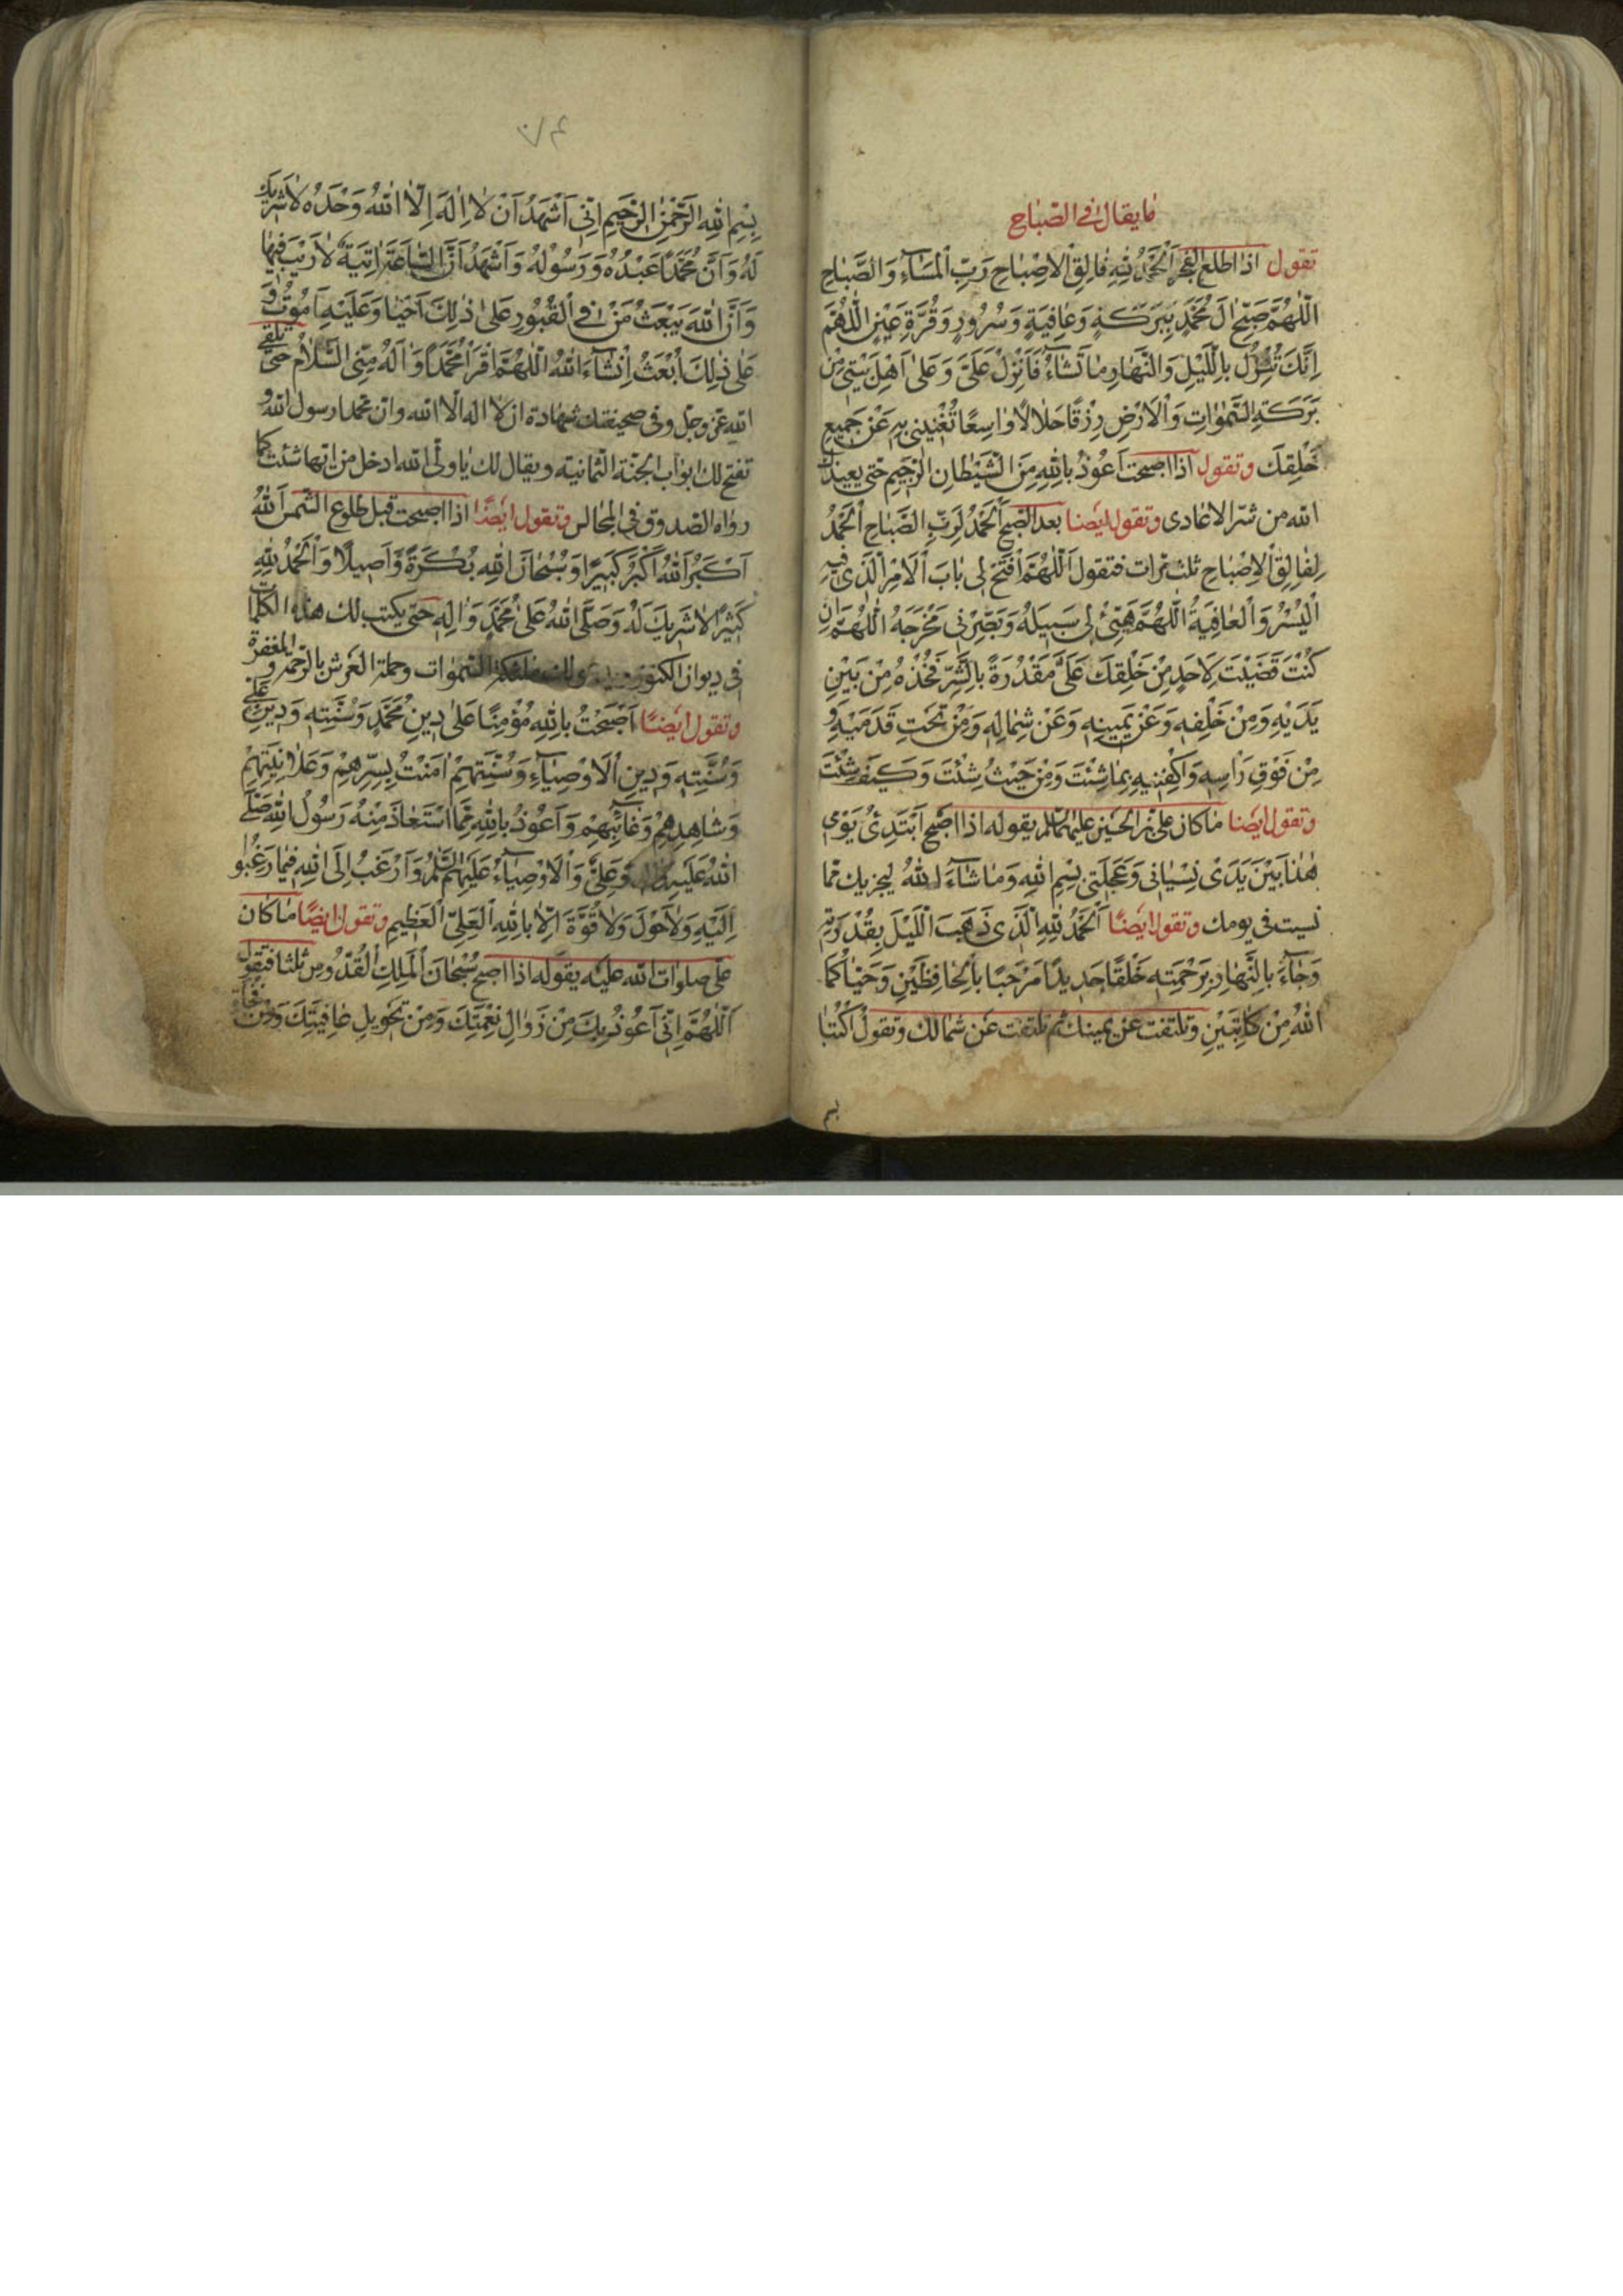 ما يقال في الصباح
تقول اذا طلع الفجر اَلْحَمْدُ لِلّٰهِ فَالِقِ الْاِصْبَاحِ رَبِّ الْمَسَآءِ وَالصَّبَاحِ
اَللّٰهُمَّ صَبِّحْ اٰلَ مُحَمَّدٍ بِبَرَكَةٍ وَعَافِيَةٍ وَسُرُورٍ وَقُرَّةِ عَيْنٍ اَللّٰهُمَّ
اِنَّكَ تُنْزِلُ بِاللَّيْلِ وَالنَّهَارِ مَا تَشَآءُ فَاَنْزِلْ عَلَيَّ وَعَلٰى اَهْلِ بَيْتِي مِنْ
بَرَكَةِ السَّمٰوَاتِ وَالْاَرْضِ رِزْقًا حَلَالًا وَاسِعًا تُغْنِينِي بِهِ عَنْ جَمِيعِ
خَلْقِكَ وتقول اذا اصبحت اَعُوذُ بِاللّٰهِ مِنَ الشَّيْطَانِ الرَّجِيمِ حتى يعيذك
الله من شر الاعادى وتقول ايضا بعد الصبح اَلْحَمْدُ لِرَبِّ الصَّبَاحِ اَلْحَمْدُ
لِفَالِقِ الْاِصْبَاحِ ثلث مرات فتقول اَللّٰهُمَّ افْتَحْ لِي بَابَ الْاَمْرِ الَّذِي فِيهِ
الْيُسْرُ وَالْعَافِيَةُ اَللّٰهُمَّ هَيِّئْ لِي سَبِيلَهُ وَبَصِّرْنِي مَخْرَجَهُ اَللّٰهُمَّ اِنْ
كُنْتَ قَضَيْتَ لِاَحَدٍ مِنْ خَلْقِكَ عَلَيَّ مَقْدُرَةً بِالشَّرِّ فَخُذْهُ مِنْ بَيْنِ
يَدَيْهِ وَمِنْ خَلْفِهِ وَعَنْ يَمِينِهِ وَعَنْ شِمَالِهِ وَمِنْ تَحْتِ قَدَمَيْهِ وَ
مِنْ فَوْقِ رَاْسِهِ وَاكْفِنِيهِ بِمَا شِئْتَ وَمِنْ حَيْثُ شِئْتَ وَكَيْفَ شِئْتَ
وتقول ايضا ما كان علي بن الحسين عليهما السلم يقوله اذا اصبح اَبْتَدِئُ يَوْمِي
هٰذَا بَيْنَ يَدَيْ نِسْيَانِي وَعَجَلَتِي بِسْمِ اللّٰهِ وَمَا شَآءَ اللّٰهُ ليجزيك مما
نسيت فى يومك وتقول ايضًا اَلْحَمْدُ لِلّٰهِ الَّذِي ذَهَبَ اللَّيْلَ بِقُدْرَتِهِ
وَجَآءَ بِالنَّهَارِ بِرَحْمَتِهِ خَلْقًا جَدِيدًا مَرْحَبًا بِالْحَافِظَيْنِ وَحَيَّاكُمَا
اللّٰهُ مِنْ كَاتِبَيْنِ وتلتفت عن يمينك ثم تلتفت عن شمالك وتقول اُكْتُبَا
بسم
بِسْمِ اللّٰهِ الرَّحْمٰنِ الرَّحِيمِ اِنِّي اَشْهَدُ اَنْ لَا اِلٰهَ اِلَّا اللّٰهُ وَحْدَهُ لَا شَرِيكَ
لَهُ وَاَنَّ مُحَمَّدًا عَبْدُهُ وَرَسُولُهُ وَاَشْهَدُ اَنَّ السَّاعَةَ اٰتِيَةٌ لَا رَيْبَ فِيهَا
وَاَنَّ اللّٰهَ يَبْعَثُ مَنْ فِي الْقُبُورِ عَلٰى ذٰلِكَ اَحْيَا وَعَلَيْهِ اَمُوتُ وَ
عَلٰى ذٰلِكَ اُبْعَثُ اِنْشَآءَ اللّٰهُ اَللّٰهُمَّ اقْرَاْ مُحَمَّدًا وَاٰلَهُ مِنِّي السَّلَامَ حتى تلقى
الله عز وجل وفى صحيفتك شهادة ان لا اله الا الله وان محمدا رسول الله و
تفتح لك ابواب الجنة الثمانية ويقال لك يا ولى الله ادخل من ايها شئت كما
رواه الصدوق فى المجالس وتقول ايضًا اذا اصبحت قبل طلوع الشمس اَللّٰهُ
اَكْبَرُ اَللّٰهُ اَكْبَرُ كَبِيرًا وَسُبْحَانَ اللّٰهِ بُكْرَةً وَاَصِيلًا وَالْحَمْدُ لِلّٰهِ
كَثِيرًا لَا شَرِيكَ لَهُ وَصَلَّى اللّٰهُ عَلٰى مُحَمَّدٍ وَاٰلِهِ حتى يكتب لك هذه الكلمات
فى ديوان الكنوز ملئكة السموات وحملة العرش بالرحمة والمغفرة
وتقول ايضًا اَصْبَحْتُ بِاللّٰهِ مُؤْمِنًا عَلٰى دِينِ مُحَمَّدٍ وَسُنَّتِهِ وَدِينِ عَلِيٍّ
وَسُنَّتِهِ وَدِينِ الْاَوْصِيَآءِ وَسُنَّتِهِمْ اٰمَنْتُ بِسِرِّهِمْ وَعَلَانِيَتِهِمْ
وَشَاهِدِهِمْ وَغَائِبِهِمْ وَاَعُوذُ بِاللّٰهِ مِمَّا اسْتَعَاذَ مِنْهُ رَسُولُ اللّٰهِ صَلَّى
اللّٰهُ عَلَيْهِ وَعَلِيٌّ وَالْاَوْصِيَآءُ عَلَيْهِمُ السَّلَمُ وَاَرْغَبُ اِلَى اللّٰهِ فِيمَا رَغِبُوا
اِلَيْهِ وَلَا حَوْلَ وَلَا قُوَّةَ اِلَّا بِاللّٰهِ الْعَلِيِّ الْعَظِيمِ وتقول ايضًا ما كان
على صلوات الله عليه يقوله اذا اصبح سُبْحَانَ الْمَلِكِ الْقُدُّوسِ ثلثا فتقول
اَللّٰهُمَّ اِنِّي اَعُوذُ بِكَ مِنْ زَوَالِ نِعْمَتِكَ وَمِنْ تَحْوِيلِ عَافِيَتِكَ وَمِنْ فَجْأَةِ